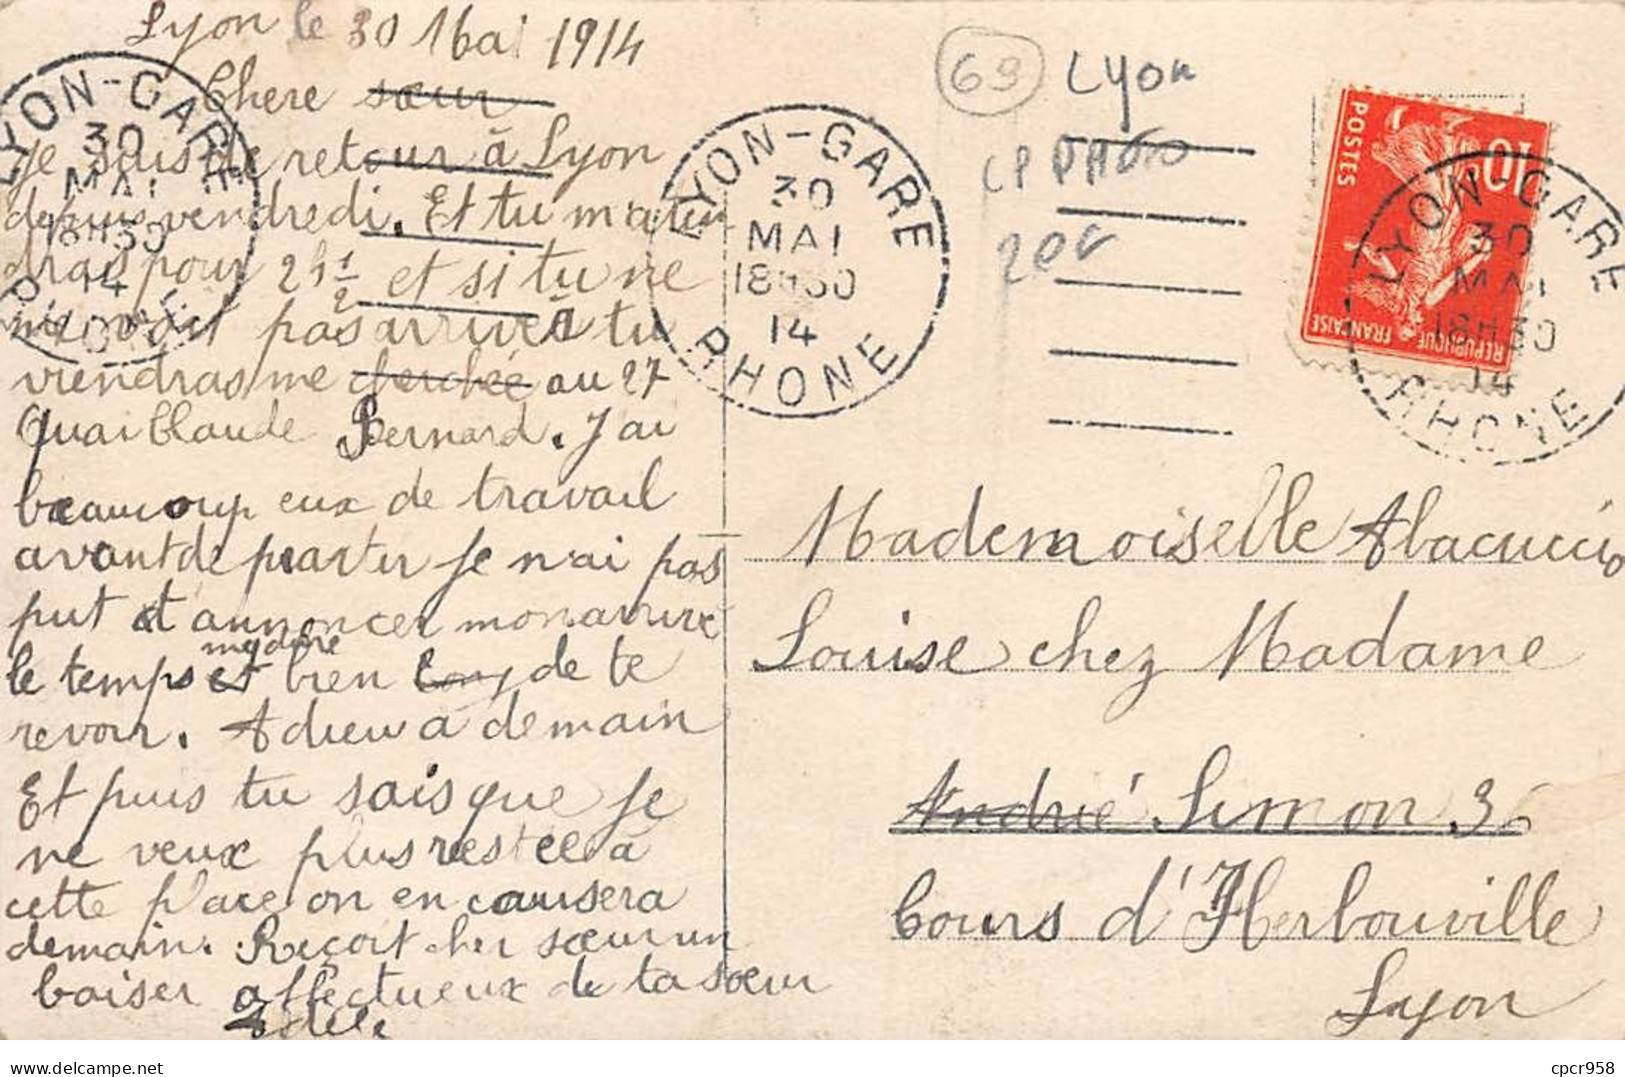 Lyon le 30 Mai 1914
Chere sœur
Je suis de retour à Lyon
depuis vendredi. Et tu m'atten
dras pour 2h 1/2 et si tu ne
me voit pas arrivée à tu
viendras me cherchée au 27
Quai Claude Bernard. J'ai
beaucoup eux de travail
avant de partir Je n'ai pas
put t'annoncer mon arrivée
le temps me dure bien de te
revoir. Adieu a demain
Et puis tu sais que Je
ne veux plus restée à
cette place on en causera
demain. Reçoit cher sœur un
baiser affectueux de ta sœur
Adèle
LYON-GARE
30
MAI
18H30
14
RHONE
LYON-GARE
30
MAI
18H30
14
RHONE
69 Lyon
CP PHOTO
20€
10
POSTES
REPUBLIQUE FRANÇAISE
LYON-GARE
30
MAI
18H30
14
RHONE
Mademoiselle Abacuccio
Louise chez Madame
André Simon 36
Cours d'Herbouville
Lyon
cpcr958